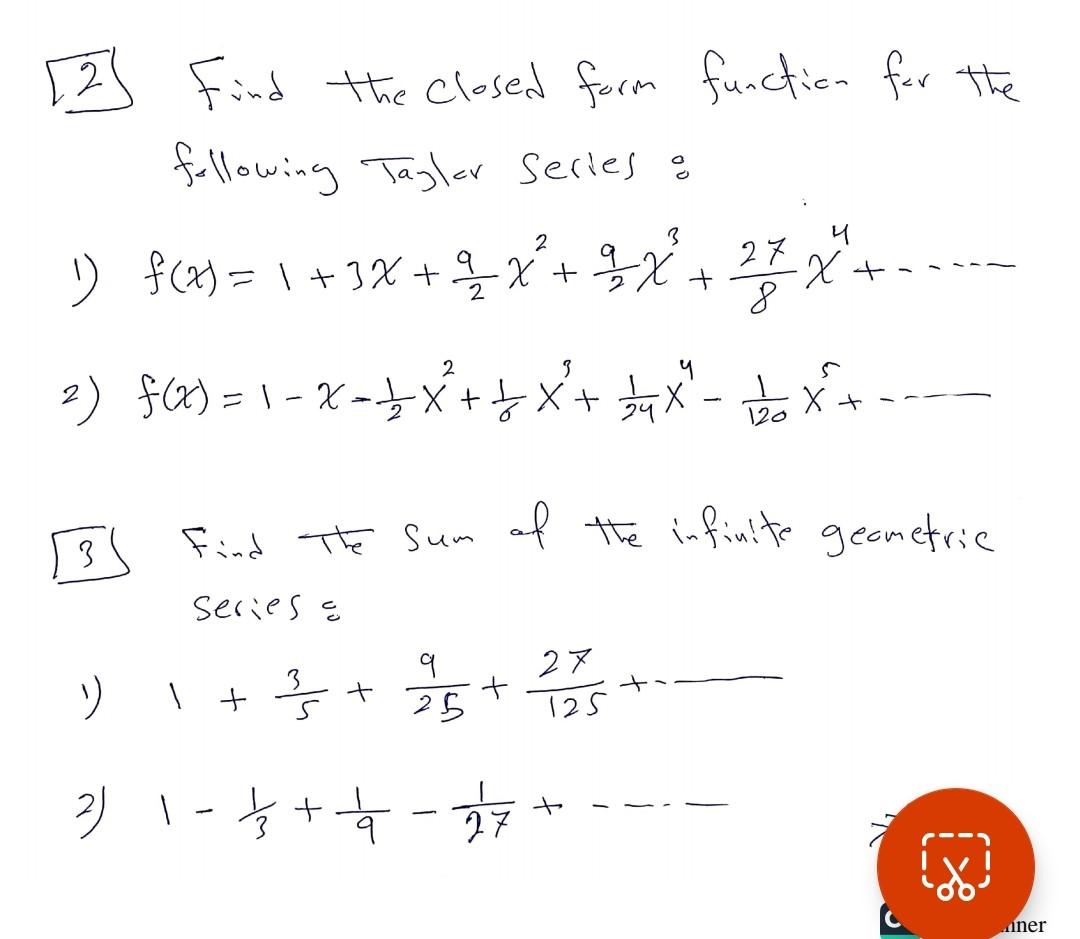 [2] Find the closed form function for the
following Taylor series :
1) f(x) = 1 + 3x + 9/2 x² + 9/2 x³ + 27/8 x⁴ + ------
2) f(x) = 1 - x - 1/2 x² + 1/6 x³ + 1/24 x⁴ - 1/120 x⁵ + ----
[3] Find the sum of the infinite geometric
series :
1) 1 + 3/5 + 9/25 + 27/125 + ----
2) 1 - 1/3 + 1/9 - 1/27 + -----